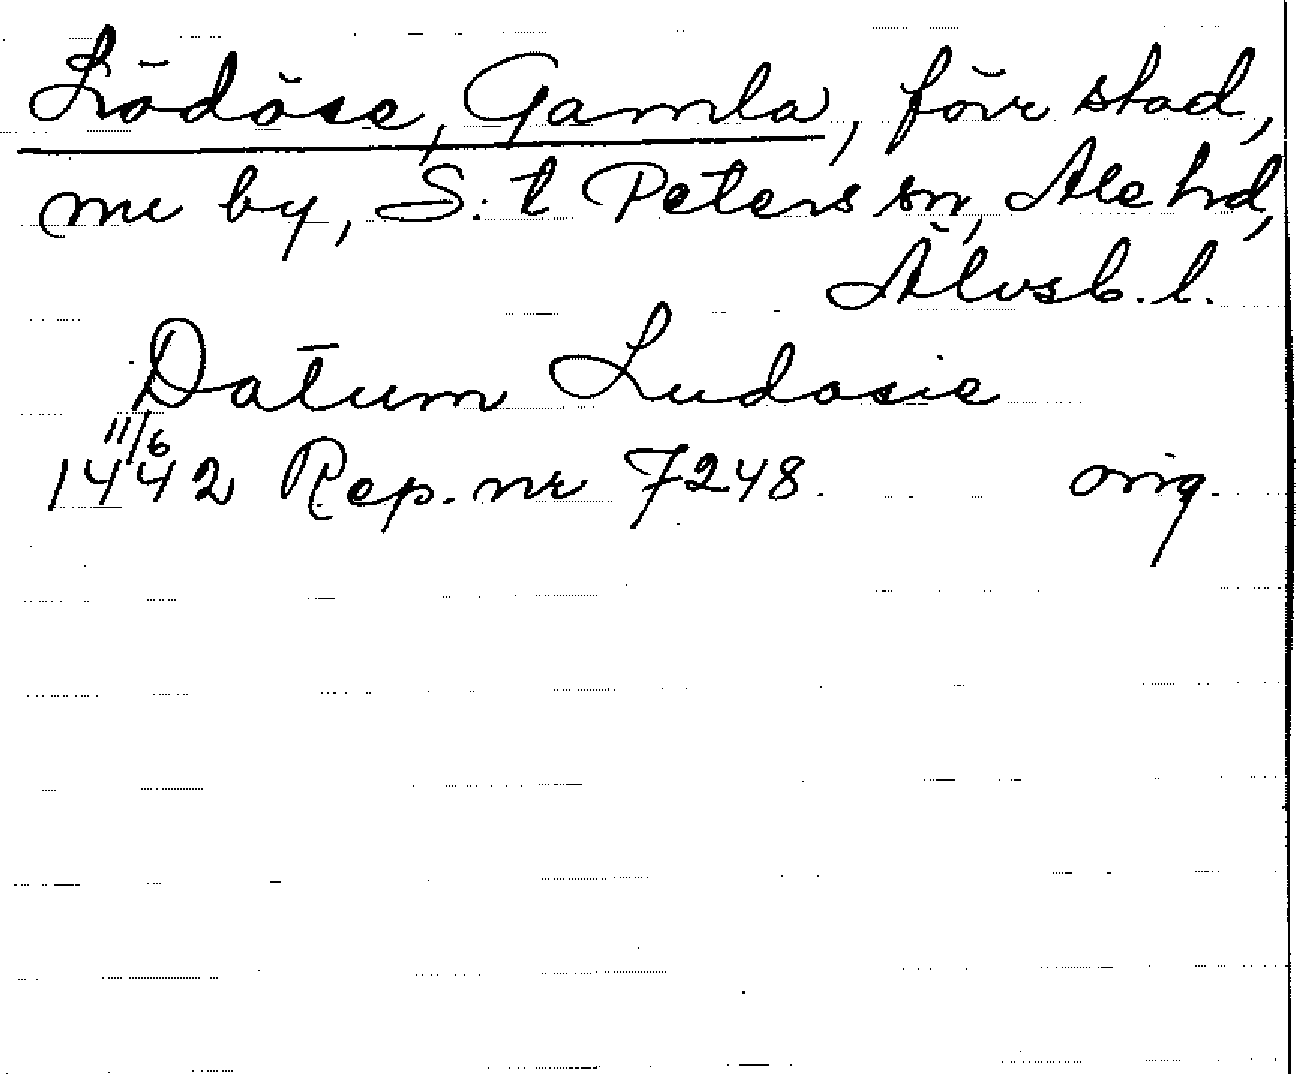 Lödöse, Gamla, förr stad,
nu by, S:t Peters sn, Ale hd,
Älvsb. l.
Datum Ludosie
11/6
1442 Rep. nr 7248. orig.